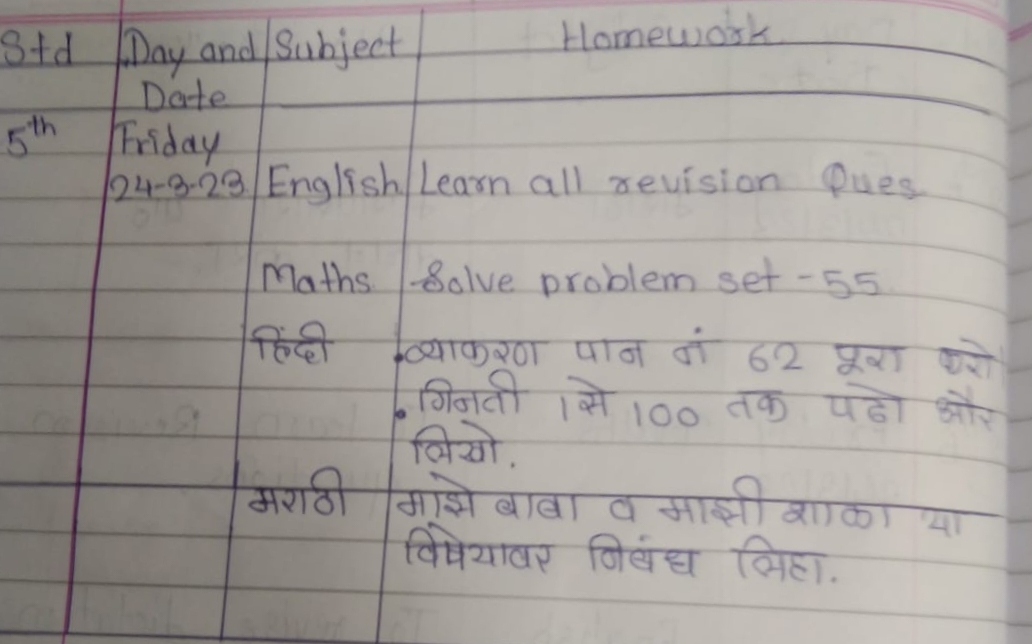 Std Day and Subject Homework
Date
5th Friday
24-3-23 English Learn all revision Ques
Maths Solve problem set - 55
हिंदी • व्याकरण पान नं 62 पूरा करो
• गिनती 1 से 100 तक पढो और
लिखो.
मराठी माझे बाबा व माझी शाळा या
विषेयावर निबंध लिहा.